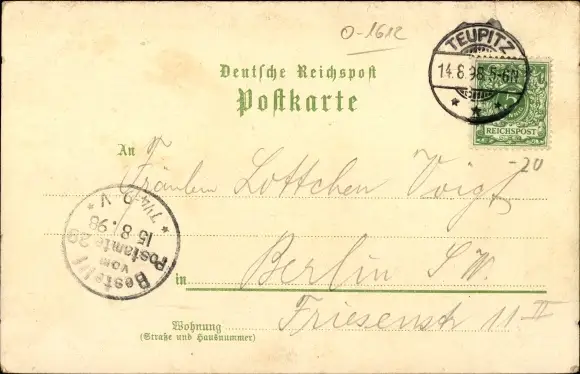 O-1612
TEUPITZ
14.8.98.5-6N
5
REICHSPOST
Deutsche Reichspost
Postkarte
-20
An
Fräulein Lottchen Voigt
Bestellt
vom
Postamte 29
15.8.98
7¼-9 V
in
Berlin S.W.
Friesenstr 11 II
Wohnung
(Straße und Hausnummer)